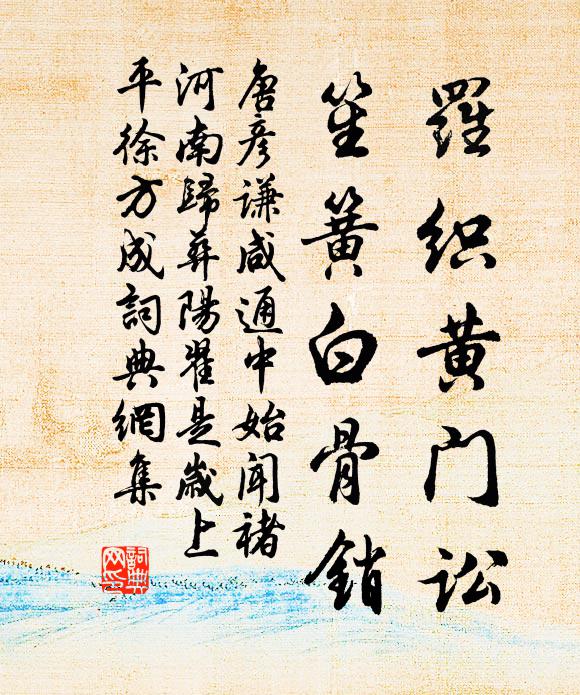 羅织黄门讼
笙簧白骨銷
唐彦谦咸通中始闻褚
河南歸葬陽翟是歲上
平徐方成詞典網集
詞典网印